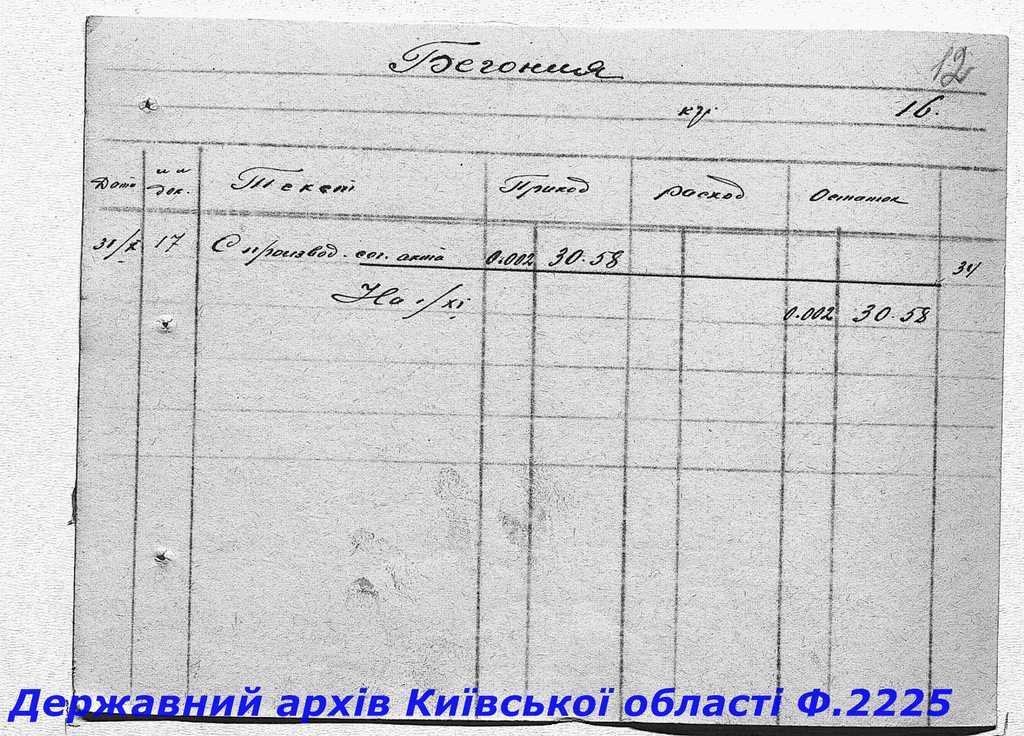 Бегония
12
кг
16.
Дата
№№ док.
Текст
Приход
Расход
Остаток
31/X 17 С производ. сог. акта 0.002 30.58
На 1/XI 0.002 30.58
Державний архів Київської області Ф.2225